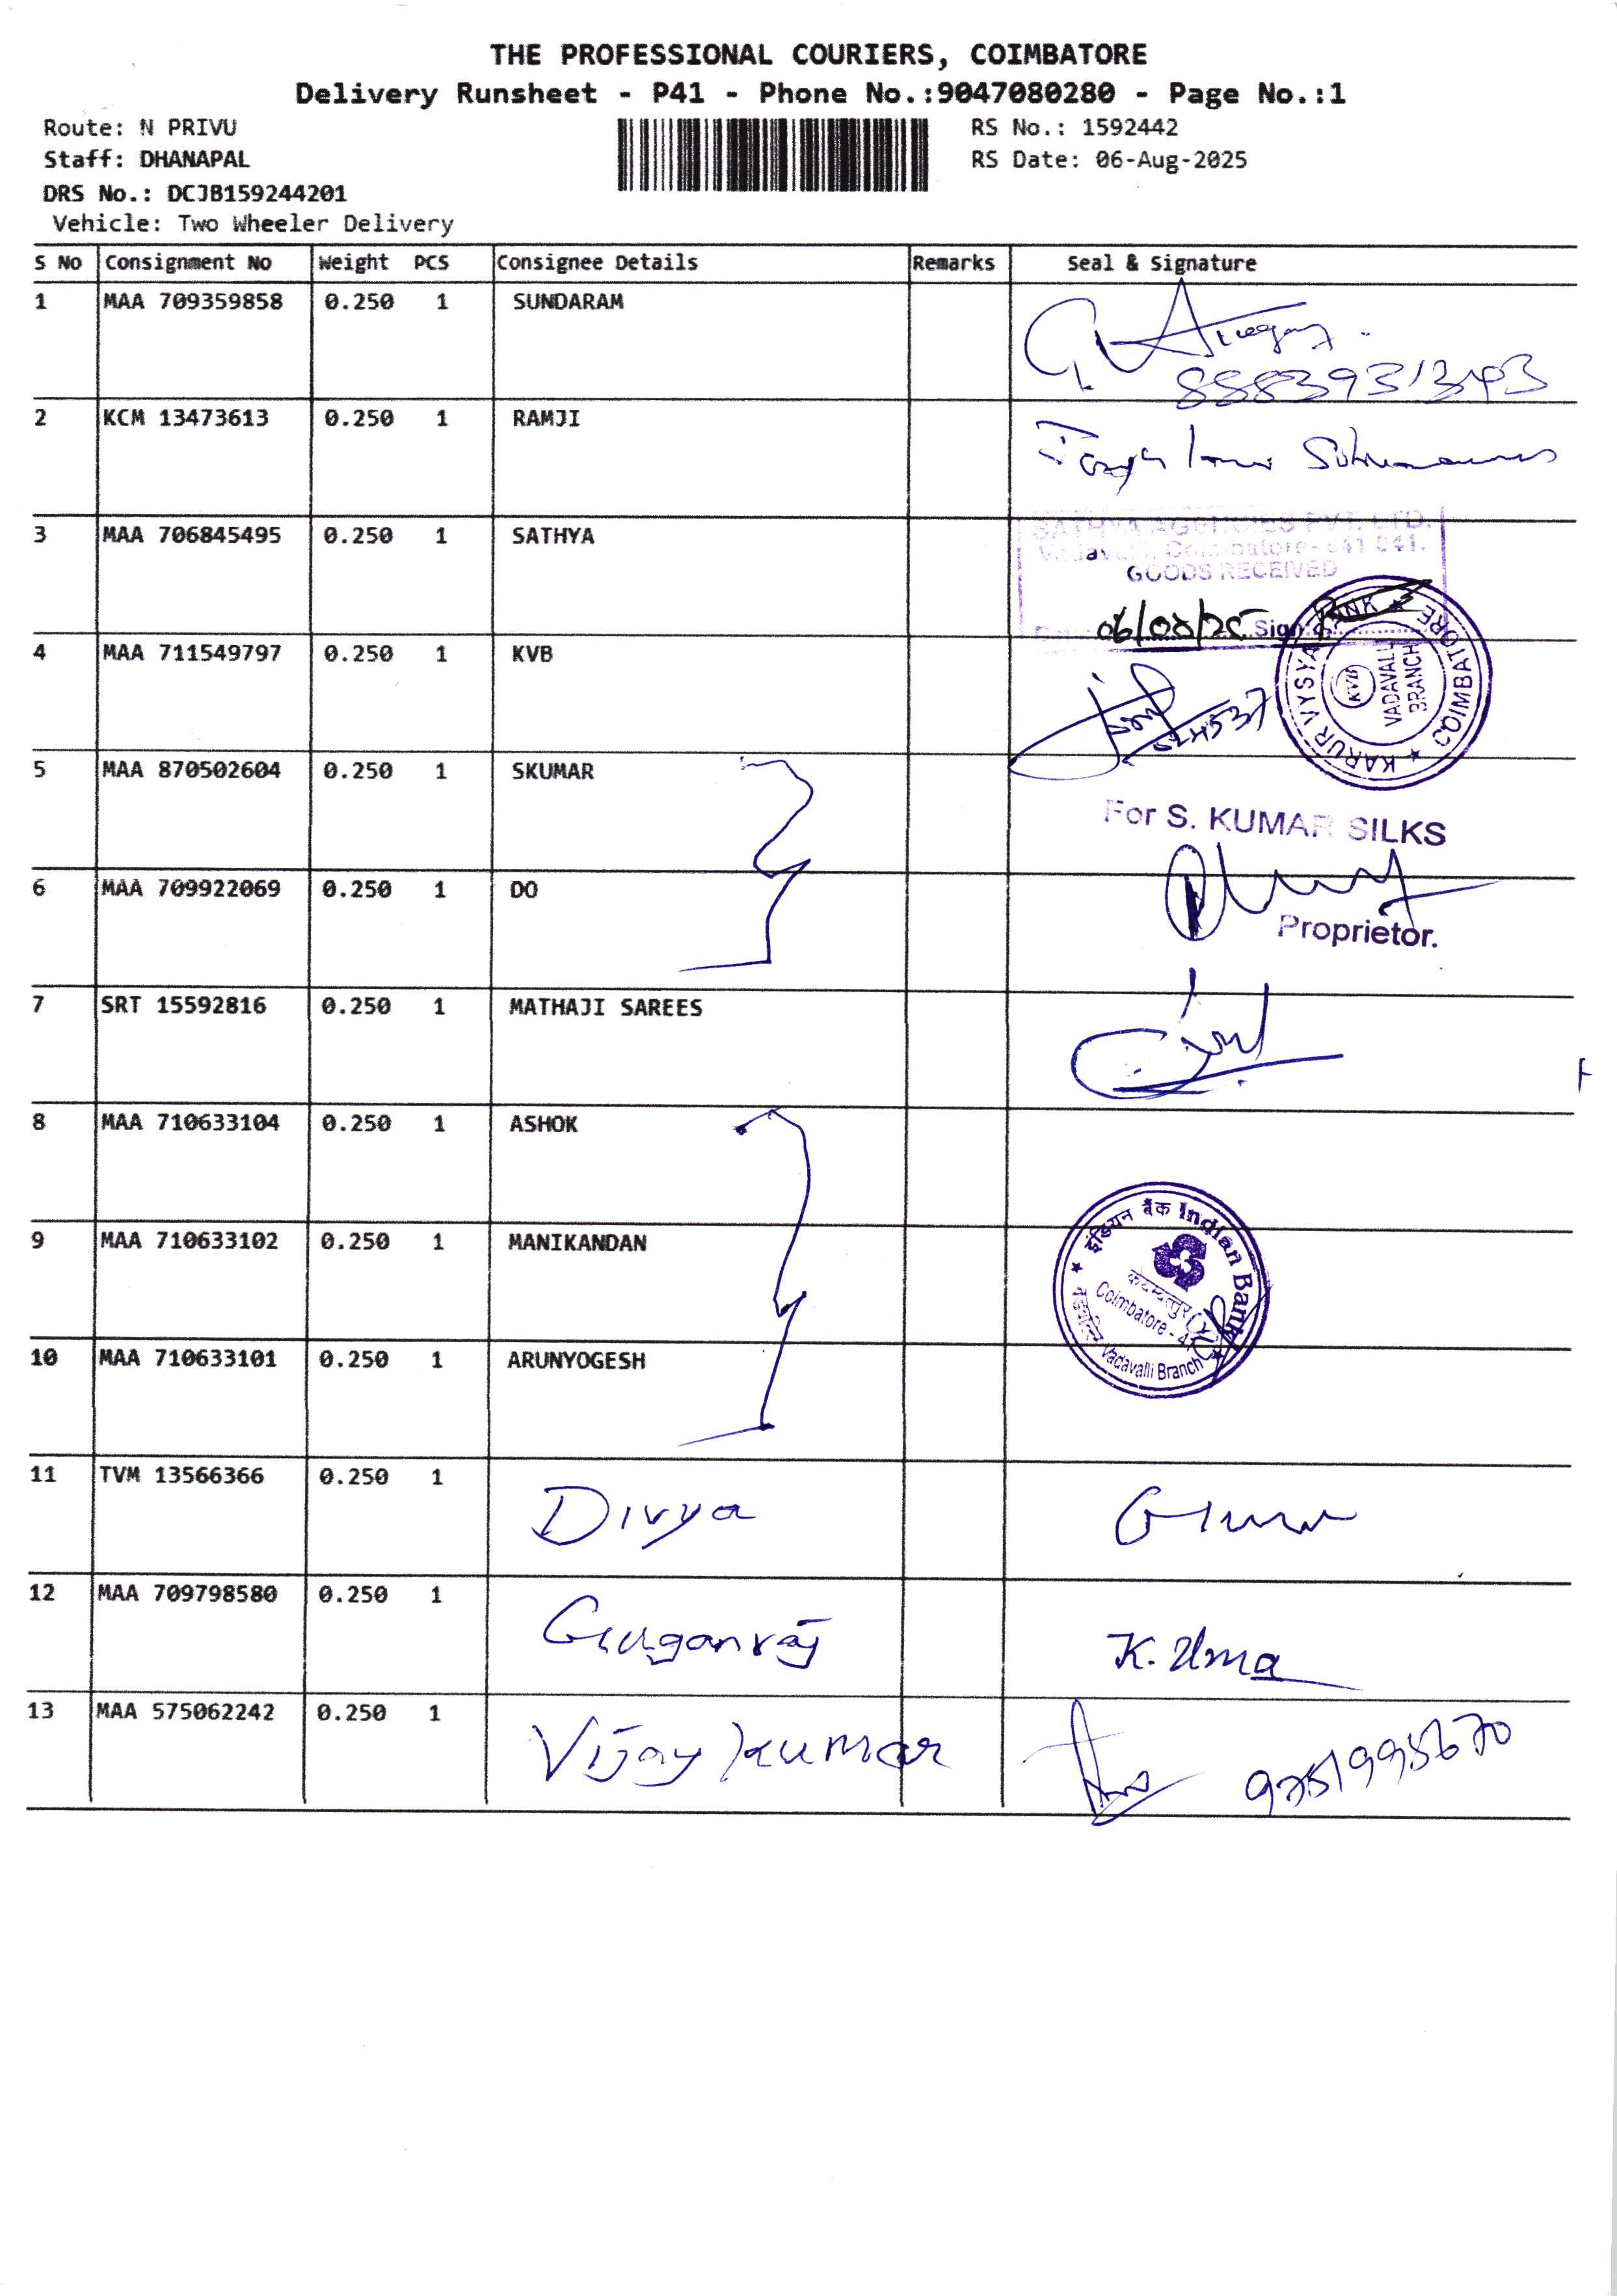 THE PROFESSIONAL COURIERS, COIMBATORE
Delivery Runsheet - P41 - Phone No.:9047080280 - Page No.:1
Route: N PRIVU
RS No.: 1592442
Staff: DHANAPAL
RS Date: 06-Aug-2025
DRS No.: DCJB159244201
Vehicle: Two Wheeler Delivery
S No Consignment No Weight PCS Consignee Details Remarks Seal & Signature
1 MAA 709359858 0.250 1 SUNDARAM
2 KCM 13473613 0.250 1 RAMJI
SATHYA AGENCIES PVT. LTD.
3 MAA 706845495 0.250 1 SATHYA
Vadavalli, Coimbatore - 641 041.
GOODS RECEIVED
06/08/25 Sign
4 MAA 711549797 0.250 1 KVB
KARUR VYSYA BANK ★ COIMBATORE ★
KVB
VADAVALLI
BRANCH
5 MAA 870502604 0.250 1 SKUMAR
For S. KUMAR SILKS
6 MAA 709922069 0.250 1 DO
Proprietor.
7 SRT 15592816 0.250 1 MATHAJI SAREES
8 MAA 710633104 0.250 1 ASHOK
इंडियन बैंक Indian Bank
9 MAA 710633102 0.250 1 MANIKANDAN
Coimbatore - 41
Vadavalli Branch
10 MAA 710633101 0.250 1 ARUNYOGESH
11 TVM 13566366 0.250 1 Divya
12 MAA 709798580 0.250 1 Guganraj K. Uma
13 MAA 575062242 0.250 1 Vijay kumar